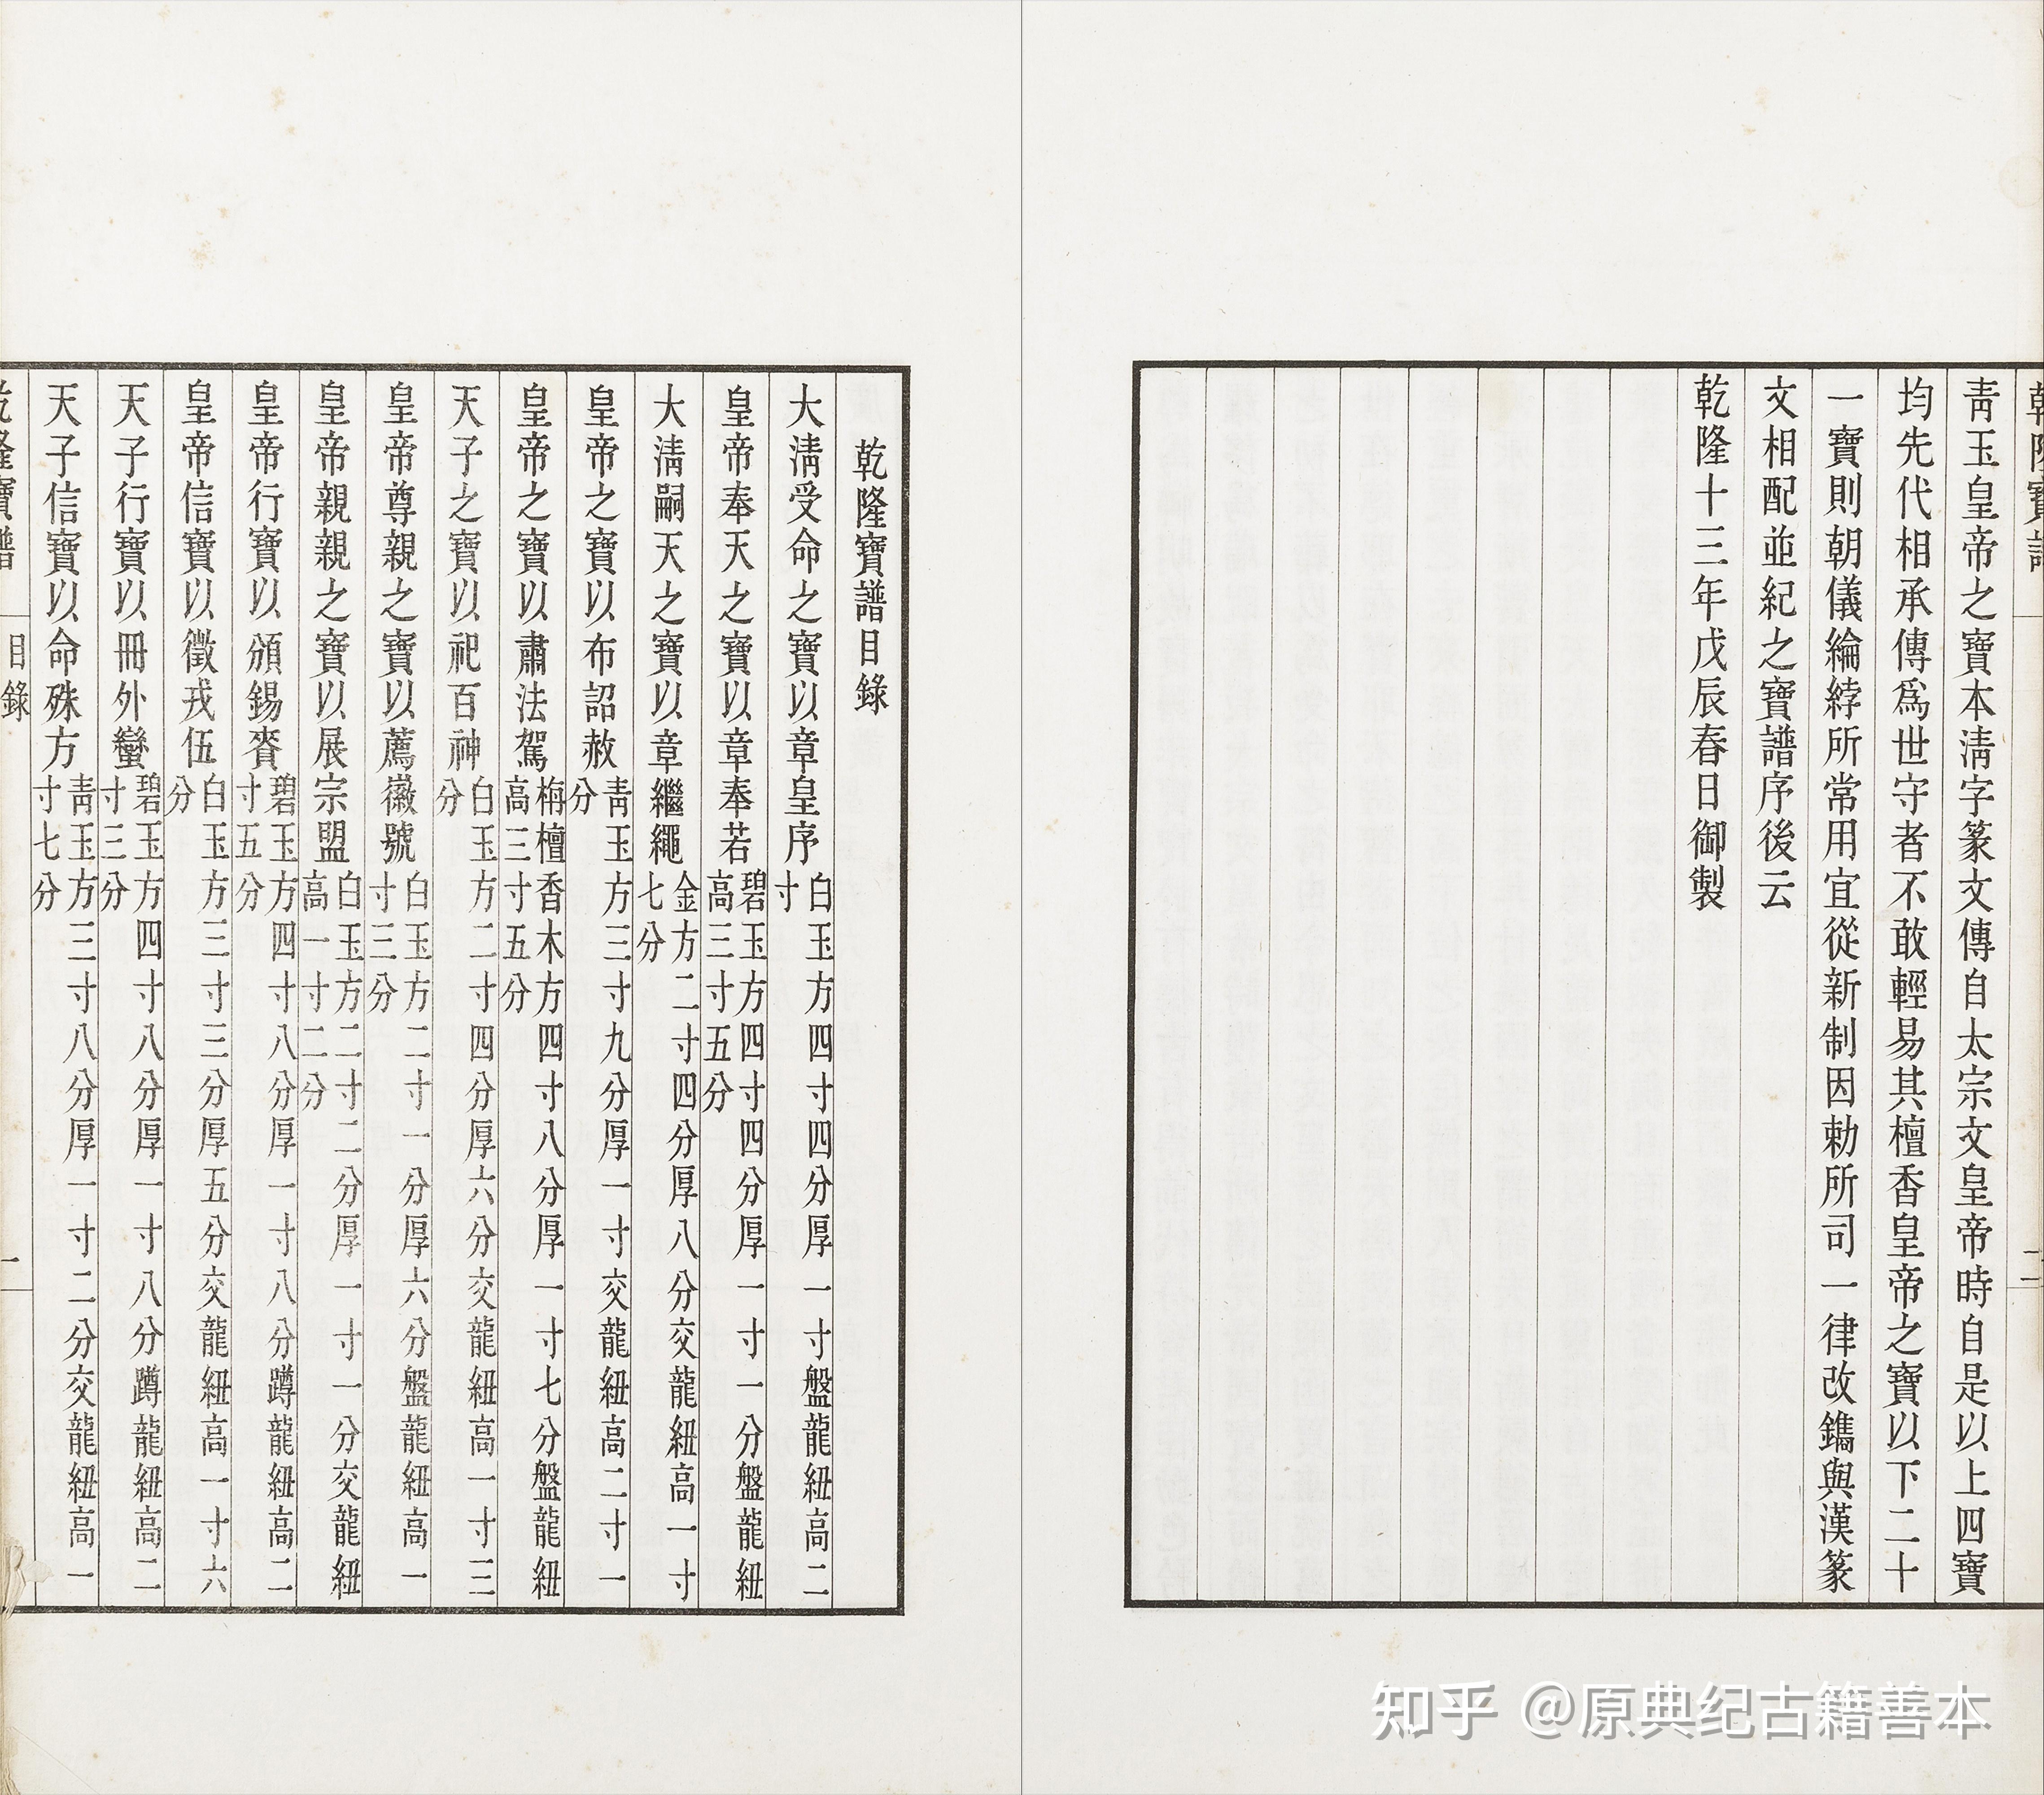 乾隆寶譜
二
靑玉皇帝之寶本淸字篆文傳自太宗文皇帝時自是以上四寶
均先代相承傳爲世守者不敢輕易其檀香皇帝之寶以下二十
一寶則朝儀綸綍所常用宜從新制因勅所司一律改鐫與漢篆
文相配並紀之寶譜序後云
乾隆十三年戊辰春日御製
乾隆寶譜目錄
大淸受命之寶以章皇序
白玉方四寸四分厚一寸盤龍紐高二
寸
皇帝奉天之寶以章奉若
碧玉方四寸四分厚一寸一分盤龍紐
高三寸五分
大淸嗣天之寶以章繼繩
金方二寸四分厚八分交龍紐高一寸
七分
皇帝之寶以布詔赦
靑玉方三寸九分厚一寸交龍紐高二寸一
分
皇帝之寶以肅法駕
栴檀香木方四寸八分厚一寸七分盤龍紐
高三寸五分
天子之寶以祀百神
白玉方二寸四分厚六分交龍紐高一寸三
分
皇帝尊親之寶以薦徽號
白玉方二寸一分厚六分盤龍紐高一
寸三分
皇帝親親之寶以展宗盟
白玉方二寸二分厚一寸一分交龍紐
高一寸二分
皇帝行寶以頒錫賚
碧玉方四寸八分厚一寸八分蹲龍紐高二
寸五分
皇帝信寶以徵戎伍
白玉方三寸三分厚五分交龍紐高一寸六
分
天子行寶以冊外蠻
碧玉方四寸八分厚一寸八分蹲龍紐高二
寸三分
天子信寶以命殊方
靑玉方三寸八分厚一寸二分交龍紐高一
寸七分
乾隆寶譜
目錄
一
知乎 @原典纪古籍善本